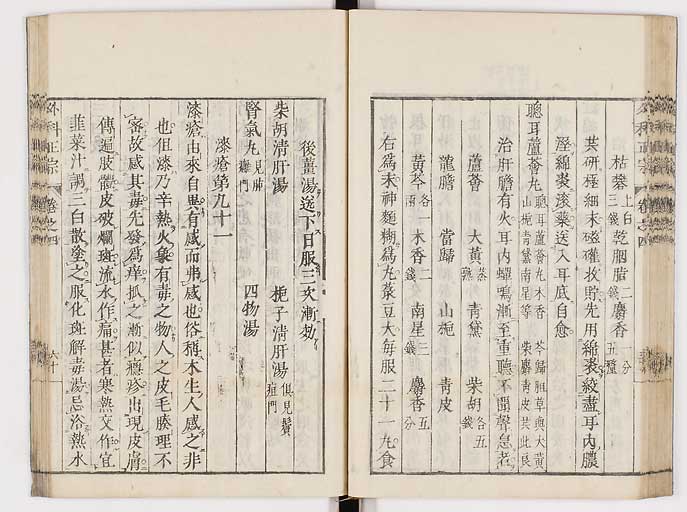 枯礬上白三錢乾胭脂二錢麝香一分五釐
共研極細末磁礶收貯先用綿裹絞盡耳內膿
溼綿裹滾藥送入耳底自愈
聰耳蘆薈丸
聰耳蘆薈丸木香
山梔青黛南星等
芩歸胆草與大黃
柴麝青皮共此良
治肝膽有火耳內蟬鳴漸至重聽不聞聲息者
蘆薈 大黃蒸熟 青黛 柴胡各五錢
龍膽 當歸 山梔 青皮
黃芩各一兩 木香二錢 南星三錢 麝香五分
右爲末神麯糊爲丸菉豆大每服二十一丸食
後薑湯送下日服三次漸効
柴胡清肝湯 梔子清肝湯俱見鬢疽門
腎氣丸見肺癰門 四物湯
漆瘡第九十一
漆瘡由來自異有感而弗感也俗稱木生人感之非
也但漆乃辛熱火象有毒之物人之皮毛腠理不
密故感其毒先發爲痒抓之漸似癮疹出現皮膚
傳遍肢體皮破爛斑流水作痛甚者寒熱交作宜
韭菜汁調三白散塗之服化斑解毒湯忌浴熱水
外科正宗 卷之四
六十